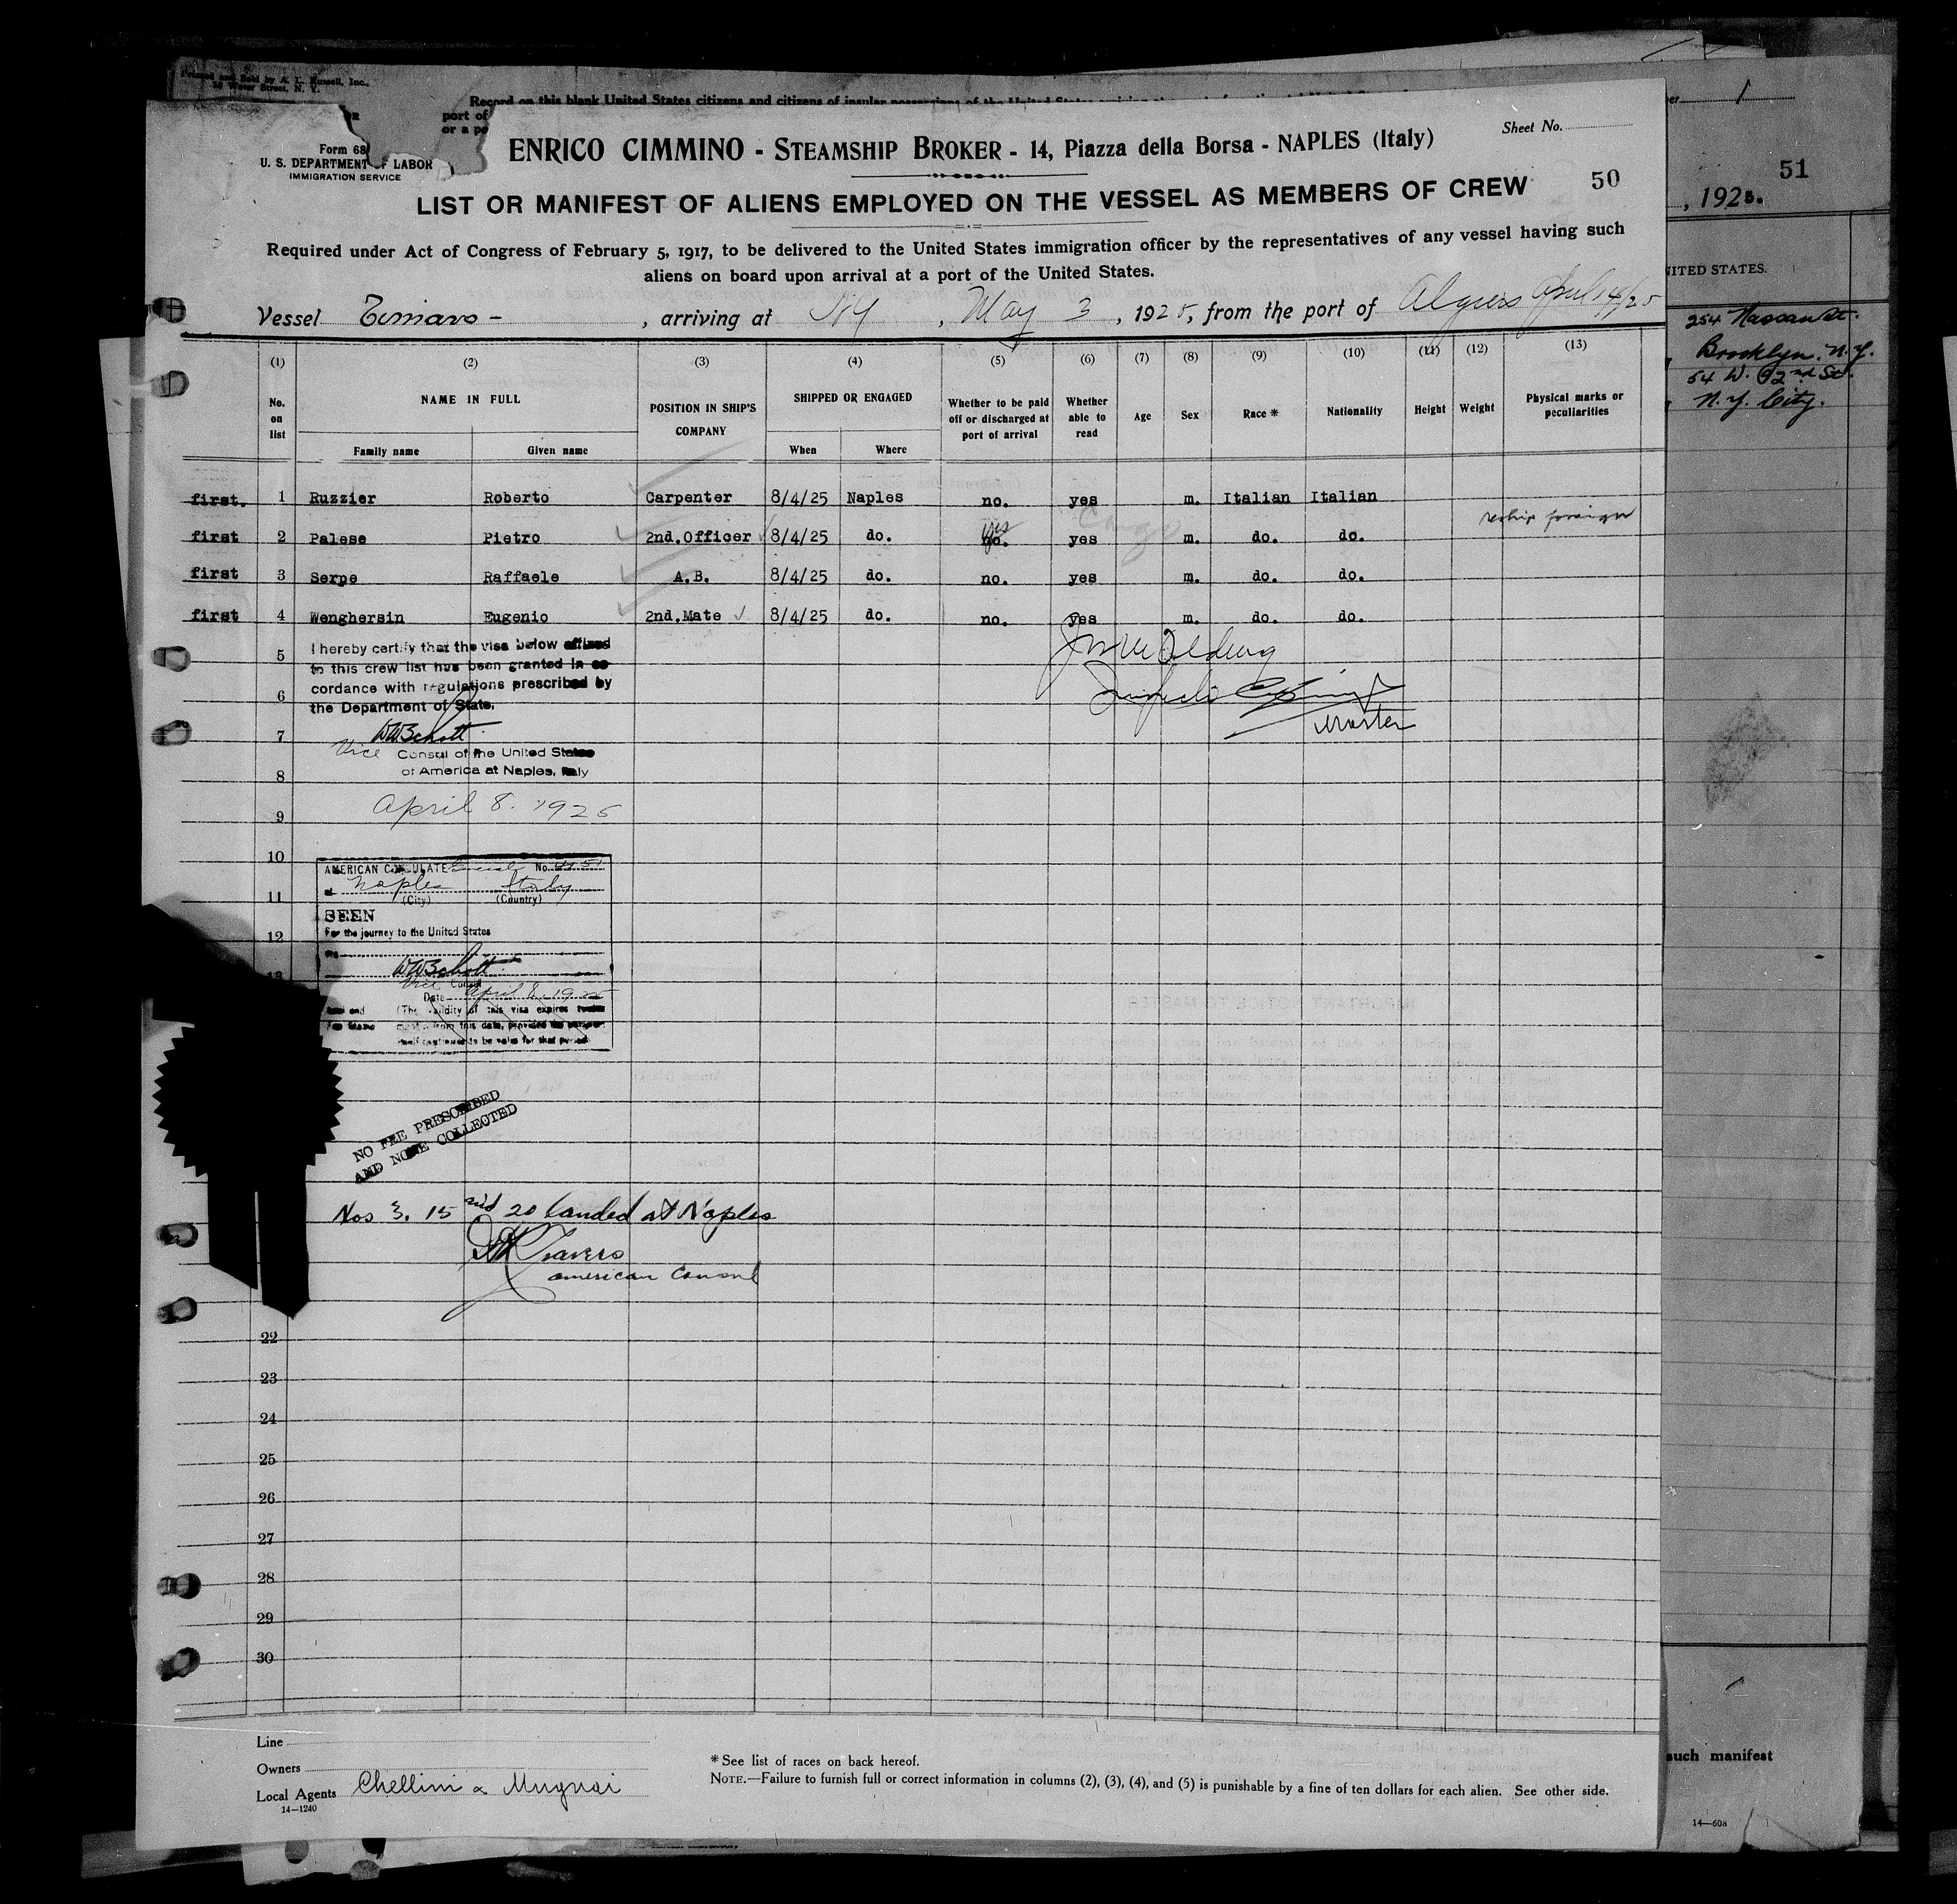 Printed and Sold by A. L. Russell, Inc.,
Water Street, N. Y.
Record on this blank United States citizens and citizens of insular possessions of the United States
port of
or a po
Form 68
U. S. DEPARTMENT OF LABOR
IMMIGRATION SERVICE
ENRICO CIMMINO - STEAMSHIP BROKER - 14, Piazza della Borsa - NAPLES (Italy)
Sheet No.
50
LIST OR MANIFEST OF ALIENS EMPLOYED ON THE VESSEL AS MEMBERS OF CREW
Required under Act of Congress of February 5, 1917, to be delivered to the United States immigration officer by the representatives of any vessel having such
aliens on board upon arrival at a port of the United States.
Vessel Timavo - , arriving at NY , May 3 , 1925, from the port of Algiers April 14/25
(1) (2) (3) (4) (5) (6) (7) (8) (9) (10) (11) (12) (13)
No. on list
NAME IN FULL
Family name Given name
POSITION IN SHIP'S COMPANY
SHIPPED OR ENGAGED
When Where
Whether to be paid off or discharged at port of arrival
Whether able to read
Age
Sex
Race *
Nationality
Height
Weight
Physical marks or peculiarities
first. 1 Ruzzier Roberto Carpenter 8/4/25 Naples no. yes m. Italian Italian
reship foreign
yes
first 2 Palese Pietro 2nd.Officer 8/4/25 do. no. yes m. do. do.
first 3 Serpe Raffaele A.B. 8/4/25 do. no. yes m. do. do.
first 4 Wenghersin Eugenio 2nd.Mate 8/4/25 do. no. yes m. do. do.
5
I hereby certify that the visa below affixed
to this crew list has been granted in ac
cordance with regulations prescribed by
6
the Department of State.
Master
7
WWSchott
Vice Consul of the United States
of America at Naples, Italy
8
April 8. 1925
9
10
AMERICAN CONSULATE General No.
at Naples Italy
(City) (Country)
11
SEEN
For the journey to the United States
12
WWSchott
13
Vice Consul
Date April 8, 1925
(The validity of this visa expires twelve
months from this date, provided the passport
itself continues to be valid for that period
NO FEE PRESCRIBED
AND NONE COLLECTED
Nos 3. 15 and 20 landed at Naples
Travers
American Consul
22
23
24
25
26
27
28
29
30
Line
Owners
Local Agents Chellini & Mugnai
14—1240
* See list of races on back hereof.
NOTE.—Failure to furnish full or correct information in columns (2), (3), (4), and (5) is punishable by a fine of ten dollars for each alien. See other side.
1
51
, 1925.
NITED STATES.
254 Nassau St.
Brooklyn. N.Y.
54 W. 92nd St.
N.Y. City.
such manifest
14—608